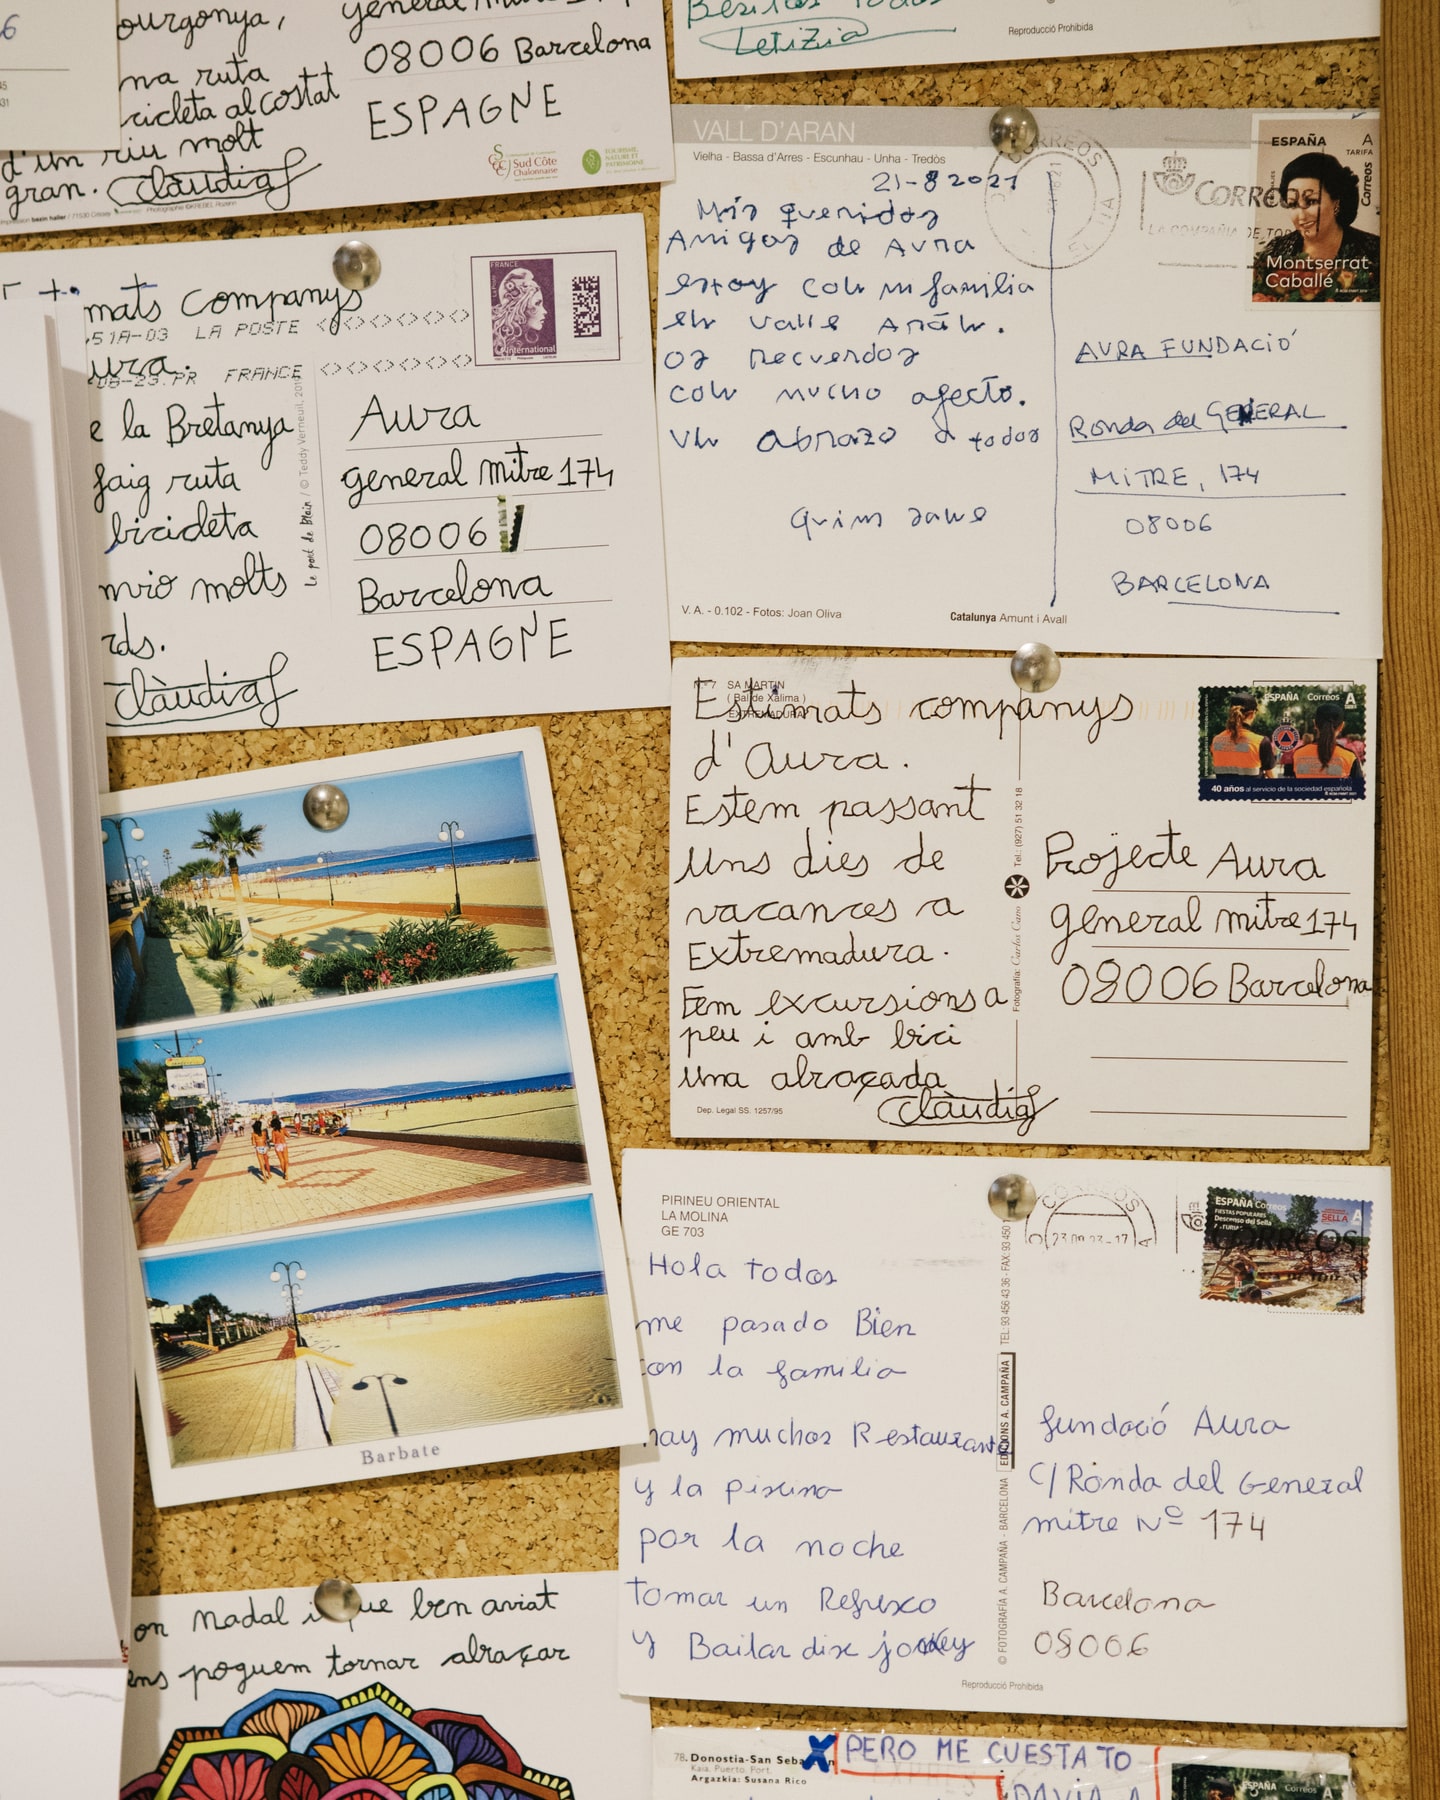 ourgonya,
na ruta
cicleta al costat
d'un riu molt
gran. Clàudia
08006 Barcelona
ESPAGNE
Sud Côte
Chalonnaise
Besitos Todos
Letizia
Reproducció Prohibida
mats companys
51A-03 LA POSTE
ura.
FRANCE
e la Bretanya
faig ruta
bicicleta
nvio molts
rds.
Clàudia
Le pont de Blain / © Teddy Verneuil, 201
FRANCE
International
Aura
general mitre 174
08006
Barcelona
ESPAGNE
VALL D'ARAN
Vielha - Bassa d'Arres - Escunhau - Unha - Tredòs
21-8 2021
Mis queridos
Amigos de Aura
estoy con mi familia
en valle Arán.
os recuerdos
con mucho afecto.
un abrazo a todos
quim
V. A. - 0.102 - Fotos: Joan Oliva
Catalunya Amunt i Avall
CORREOS
CORREOS
ESPAÑA A
TARIFA
Correos
Montserrat
Caballé
AURA FUNDACIÓ
Ronda del GENERAL
MiTRE, 174
08006
BARCELONA
N.º 7 SA MARTIN
( Bal de Xálima )
EXTREMADURA
Estimats companys
d'Aura.
Estem passant
uns dies de
vacances a
Extremadura.
Fem excursions a
peu i amb bici
una abraçada
Clàudia
Dep. Legal SS. 1257/95
Fotografía: Carlos Cano Tel.: (927) 51 32 18
ESPAÑA Correos A
40 años al servicio de la sociedad española
Projecte Aura
general mitre 174
08006 Barcelona
Barbate
PIRINEU ORIENTAL
LA MOLINA
GE 703
Hola todos
me pasado Bien
con la familia
hay muchos Restaurante
y la piscina
por la noche
tomar un Refresco
y Bailar disc jokey
© FOTOGRAFÍA A. CAMPAÑA - BARCELONA EDICIONS A. CAMPAÑA TEL: 93 456 43 36 - FAX: 93 450 1
Reproducció Prohibida
CORREOS
ESPAÑA Correos
FIESTAS POPULARES
Descenso del Sella
SELLA
A
CORREOS
fundació Aura
C/ Ronda del General
mitre Nº 174
Barcelona
08006
on Nadal i que ben aviat
ens poguem tornar abraçar
78. Donostia-San Sebastián
Kaia. Puerto. Port.
Argazkia: Susana Rico
X PERO ME CUESTA TO
DAVIA A
ESPAÑA Correos A